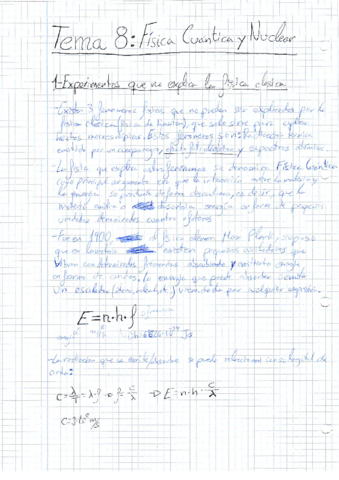 Tema 8: Física Cuantica y Nuclear
1-Experimentos que no explica la física clásica
-Existen 3 fenomenos físicos que no pueden ser explicados por la
física clásica (física de Newton), que solo sirve para explicar
hechos macroscópicos. Estos fenomenos son: Radiación térmica
emitida por un cuerpo negro, efecto fotoeléctrico y espectros atómicos.
-La física que explica estos fenomenos se denomina Física Cuantica
cuyo principal argumento es que la interacción entre la materia y
la energía se produce de forma discontinua, es decir, que la
materia emite o absorbe energía en forma de pequeñas
unidades denominadas cuantos
-Fue en 1900, el físico aleman Max Planck, supuso
que existen pequeños osciladores que
vibran con determinadas frecuencias absorbiendo y emitiendo energía
en forma de cuantos. La energía que puede absorber o emitir
un oscilador
E=n·h·f
-La radiacion que se emite/absorbe se puede relacionar con su longitud de
onda:
C=λ/T=λ·f → f=C/λ → E=n·h·C/λ
C=3·10⁸ m/s